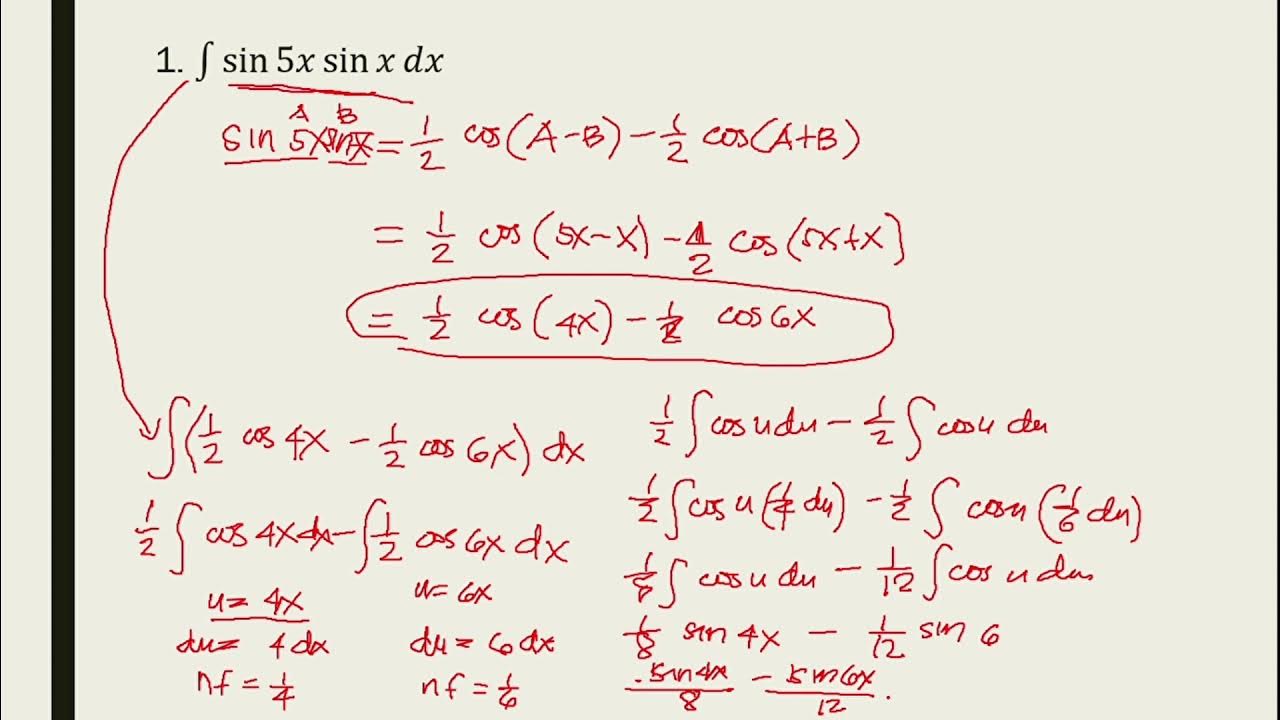 1. ∫ sin 5x sin x dx
A B
sin 5x sin x = 1/2 cos(A-B) - 1/2 cos(A+B)
= 1/2 cos(5x-x) - 1/2 cos(5x+x)
= 1/2 cos(4x) - 1/2 cos 6x
∫(1/2 cos 4x - 1/2 cos 6x) dx
1/2 ∫ cos 4x dx - ∫ 1/2 cos 6x dx
u = 4x
du = 4 dx
nf = 1/4
u = 6x
du = 6 dx
nf = 1/6
1/2 ∫ cos u du - 1/2 ∫ cos u du
1/2 ∫ cos u (1/4 du) - 1/2 ∫ cos u (1/6 du)
1/8 ∫ cos u du - 1/12 ∫ cos u du
1/8 sin 4x - 1/12 sin 6
sin 4x/8 - sin 6x/12 .